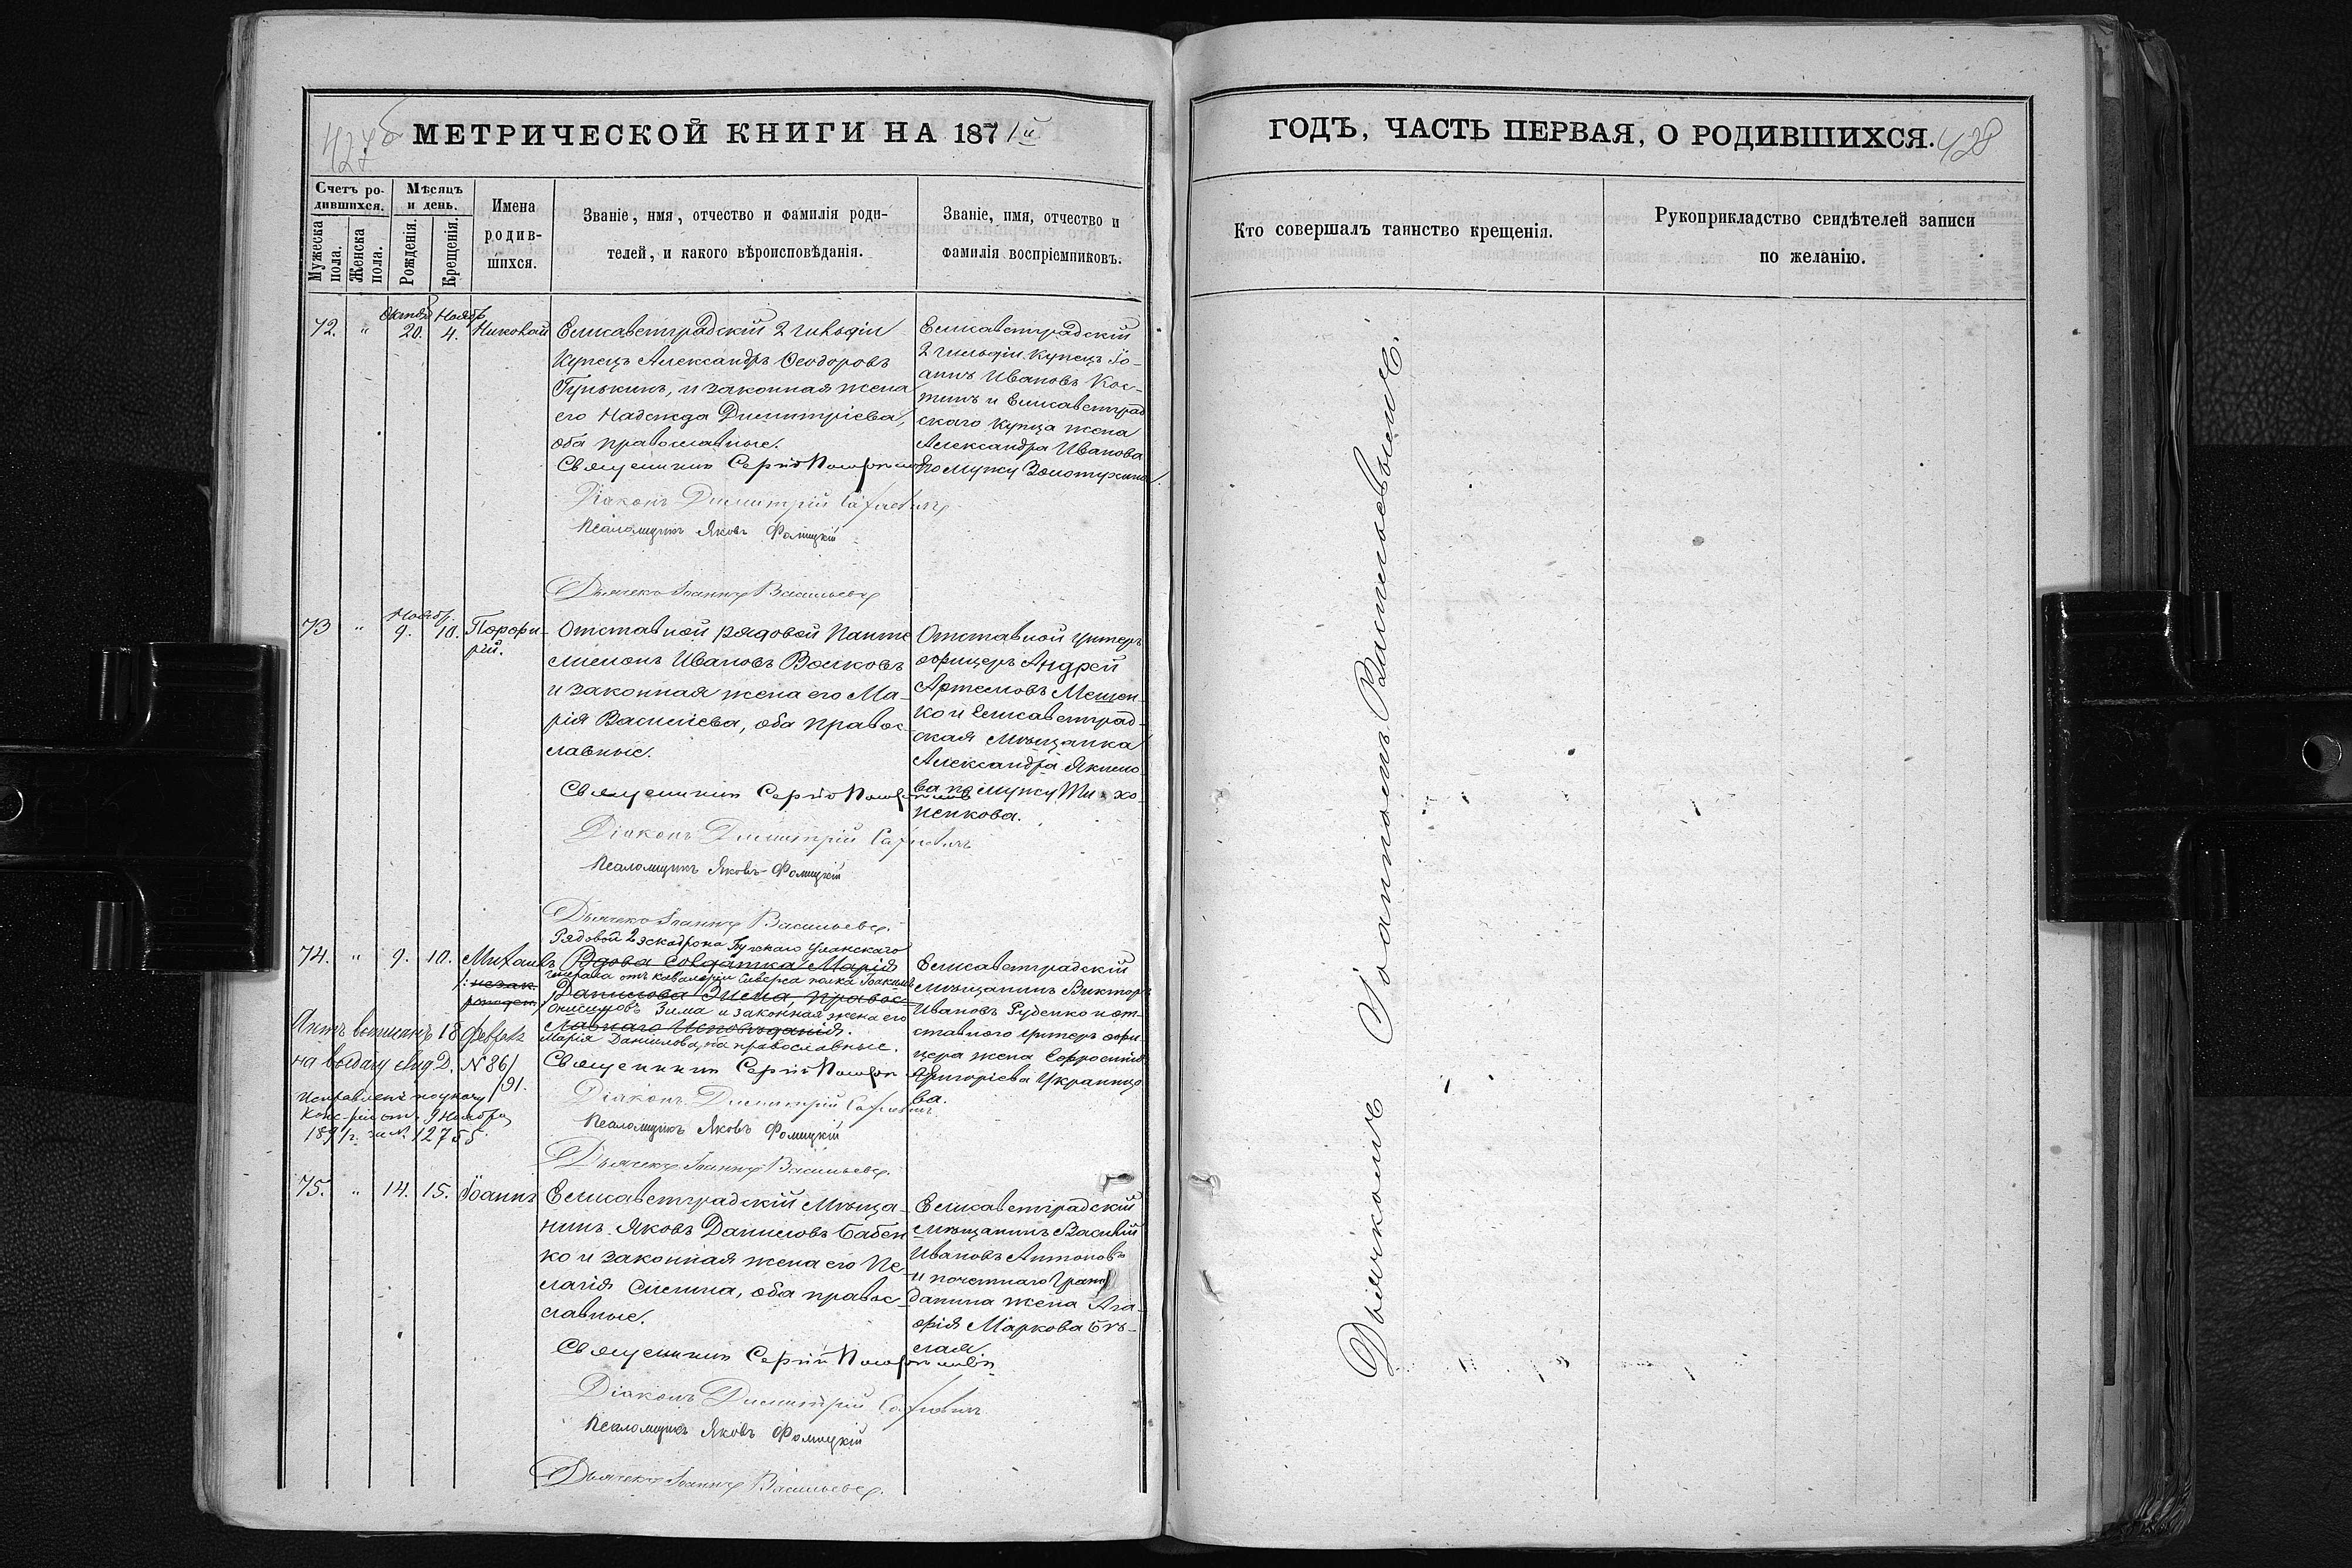 427б
МЕТРИЧЕСКОЙ КНИГИ НА 1871й
Счетъ ро-
дившихся.
Мужеска пола.
Женска пола.
Мѣсяцъ
и день.
Рожденія.
Крещенія.
Имена
родив-
шихся.
Званіе, имя, отчество и фамилія роди-
телей, и какого вѣроисповѣданія.
Званіе, имя, отчество и
фамилія воспріемниковъ.
72. " Октяб. 20. Ноябр. 4. Николай
Елисаветградскій 2 гильдіи
Купецъ Александръ Ѳеодоровъ
Гунькинъ, и законная жена
его Надежда Димитріева,
оба православные.
Священникъ Сергій
Діаконъ Димитрій
Псаломщикъ Яковъ Фомицкій
Дьячекъ Іоаннъ Васильевъ
Елисаветградскій
2 гильдіи Купецъ Іо-
аннъ Ивановъ Кос-
тинъ и Елисаветград
скаго Купца жена
Александра Иванова
по мужу Золотухина.
73 " Ноябр. 9. 10. Порфи-
рій.
Отставной рядовой Панте
леимонъ Ивановъ Волковъ
и законная жена его Ма-
рія Василіева, оба правос-
лавные.
Священникъ Сергій
Діаконъ Димитрій
Псаломщикъ Яковъ Фомицкій
Дьячекъ Іоаннъ Васильевъ.
Отставной унтеръ
офицеръ Андрей
Артемовъ Мешен-
ко и Елисаветград-
ская мѣщанка
Александра Якимо-
ва по мужу Ти хо-
ненкова.
74. " 9. 10. Михаилъ
/: незак.
рожден. /
Рядовой 2 эскадрона Бугскаго Уланскаго
Вдова Солдатка Марія
генерала отъ кавалеріи Сиверса полка Іоакимъ
Данилова Зима, правос-
Онисимовъ Зима и законная жена его
лавнаго Исповѣданія.
Марія Данилова, оба православные.
Священникъ Сергій
Діаконъ Димитрій
Псаломщикъ Яковъ Фомицкій
Дьячекъ Іоаннъ Васильевъ.
Елисаветградскій
мѣщанинъ Викторъ
Ивановъ Руденко и от-
ставного унтеръ офи-
цера жена Ефросинія
Григоріева Украинцо
ва.
Актъ выписанъ 18 Февраля
на выдачу свид. N 86/
/91.
Исправленъ по указу
Конс-ріи отъ 9 Ноября
1891 г. за N. 12755.
75. " 14. 15. Іоаннъ
Елисаветградскій мѣща-
нинъ Яковъ Даниловъ Бабен
ко и законная жена его Пе-
лагія Сисина, оба правос-
лавные.
Священникъ Сергій
Діаконъ Димитрій
Псаломщикъ Яковъ Фомицкій
Дьячекъ Іоаннъ Васильевъ.
Елисаветградскій
мѣщанинъ Василій
Ивановъ Антоновъ
и почетнаго Граж
данина жена Ага-
фія Маркова Бѣ-
лая
ГОДЪ, ЧАСТЬ ПЕРВАЯ, О РОДИВШИХСЯ.
428
Кто совершалъ таинство крещенія.
Рукоприкладство свидѣтелей записи
по желанію.
Дьячкомъ Іоанномъ Васильевымъ.